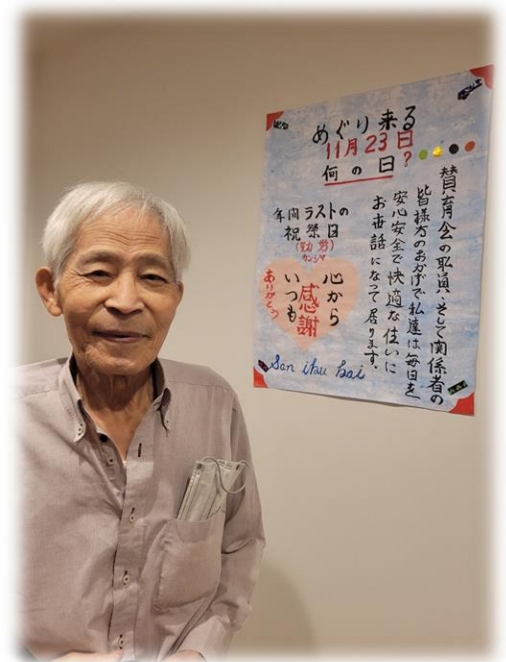 めぐり来る
11月23日
何の日?
賛育会の職員、そして関係者の
皆様方のおかげで私達は毎日を
安心安全で快適な住いに
お世話になって居ります。
年間ラストの
祝祭日
(勤労)
カンシャ
心から
感謝
いつも
ありがとう
San iku kai